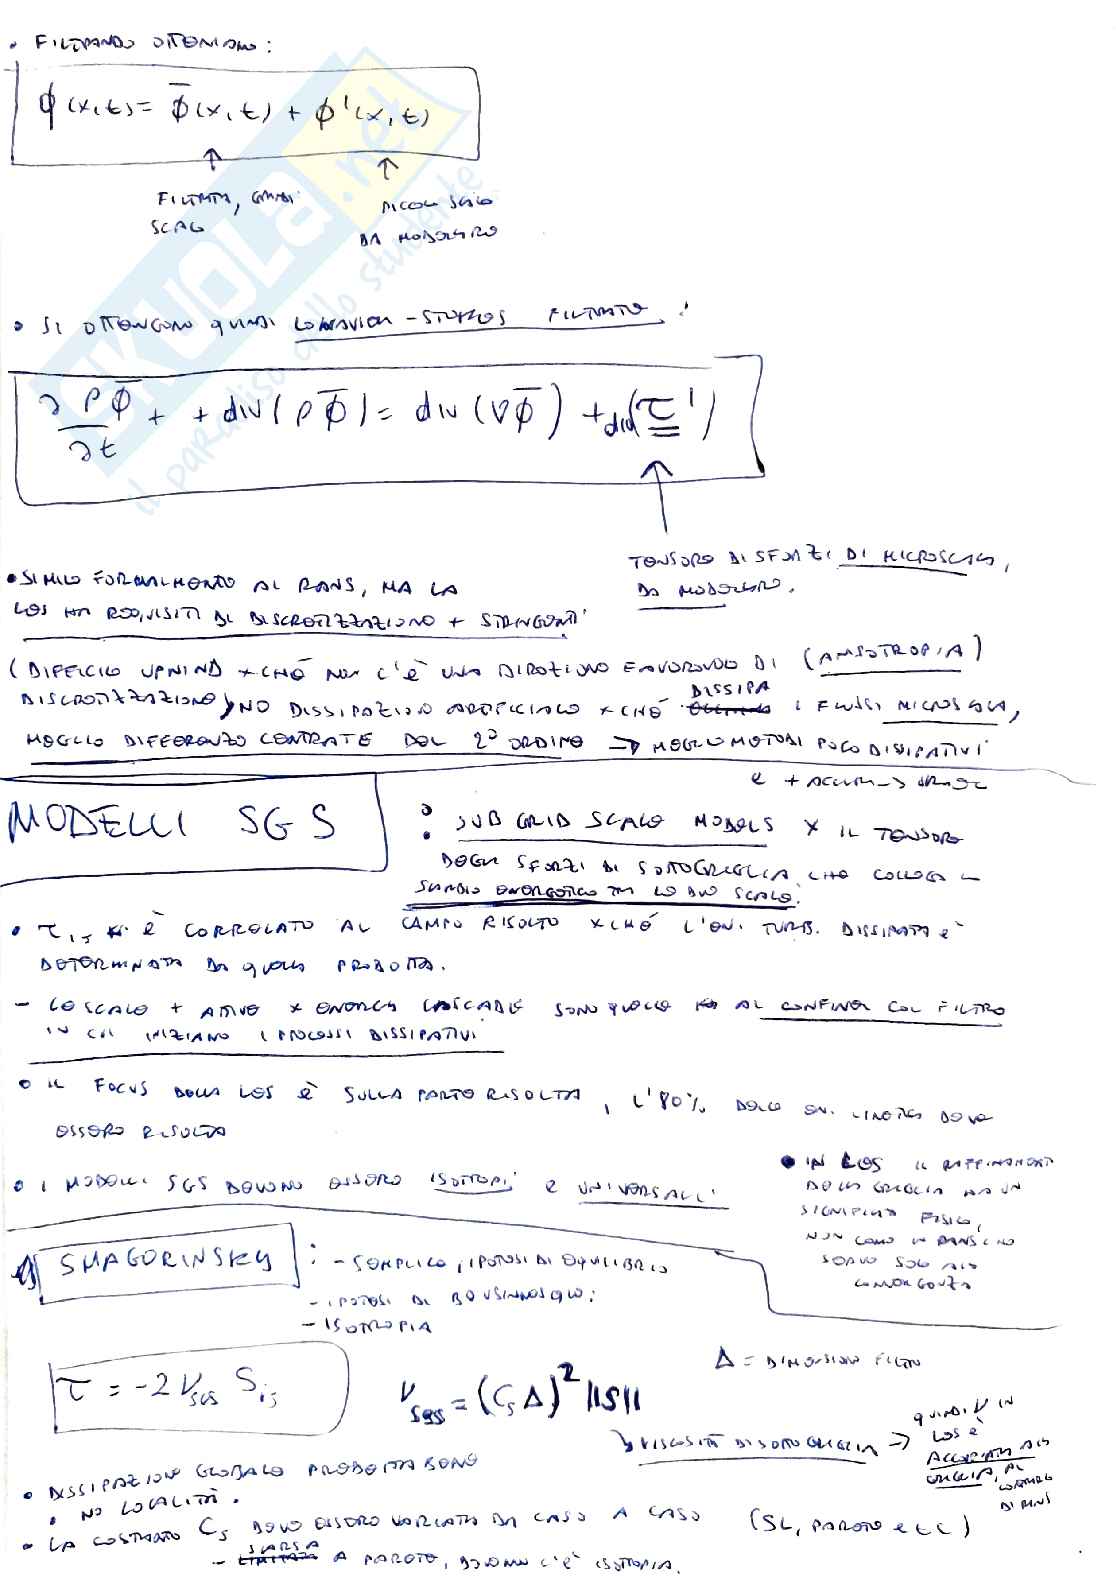 • FILTRANDO OTTENIAMO:
ϕ(x,t) = ϕ̅(x,t) + ϕ'(x,t)
FILTRATA, GRANDI SCALE
PICCOLE SCALE
DA MODELLARE
• SI OTTENGONO QUINDI LE NAVIER-STOKES FILTRATE:
∂ρϕ̅/∂t + + div(ρϕ̅) = div(ν∇ϕ̅) + div(τ')
TENSORE DI SFORZI DI MICROSCALA,
DA MODELLARE.
• SIMILE FORMALMENTE AL RANS, MA LA
LES HA REQUISITI DI DISCRETIZZAZIONE + STRINGENTI
(DIFFICILE UPWIND XCHÉ NON C'È UNA DIREZIONE FAVOREVOLE DI (ANISOTROPIA)
DISCRETIZZAZIONE) NO DISSIPAZIONE ARTIFICIALE XCHÉ DISSIPA I FLUSSI MICROSCALA,
MEGLIO DIFFERENZE CENTRATE DEL 2° ORDINE → MEGLIO METODI POCO DISSIPATIVI
MODELLI SGS
: SUB GRID SCALE MODELS X IL TENSORE
DEGLI SFORZI DI SOTTOGRIGLIA CHE COLLEGA LO
SCAMBIO ENERGETICO TRA LE DUE SCALE.
• τij È CORRELATO AL CAMPO RISOLTO XCHÉ L'EN. TURB. DISSIPATA È
DETERMINATA DA QUELLA PRODOTTA.
- LE SCALE + ATTIVE X ENERGY CASCADE SONO QUELLE AL CONFINE COL FILTRO
IN CUI INIZIANO I PROCESSI DISSIPATIVI
• IL FOCUS DELLA LES È SULLA PARTE RISOLTA, L'80% DELLA EN. CINETICA DEVE
ESSERE RISOLTA
• I MODELLI SGS DEVONO ESSERE ISOTROPI E UNIVERSALI
• IN LES IL RAFFINAMENTO
DELLA GRIGLIA HA UN
SIGNIFICATO FISICO,
NON COME IN RANS CHE
SERVE SOLO ALLA
CONVERGENZA
SMAGORINSKY : - SEMPLICE, IPOTESI DI EQUILIBRIO
- IPOTESI DI BOUSSINESQ:
- ISOTROPIA
τ = -2 νsgs Sij
νsgs = (Cs Δ)² ||S||
Δ = DIMENSIONE FILTRO
↳ VISCOSITÀ DI SOTTOGRIGLIA → QUINDI ν IN
LES È
ACCOPPIATA ALLA
GRIGLIA, AL
CONTRARIO
DI RANS
• DISSIPAZIONE GLOBALE PRODOTTA BENE
• NO LOCALITÀ.
• LA COSTANTE Cs DEVE ESSERE VARIATA DA CASO A CASO (SL, PARETE ETC)
- SCARSA A PARETE, DOVE NON C'È ISOTROPIA.